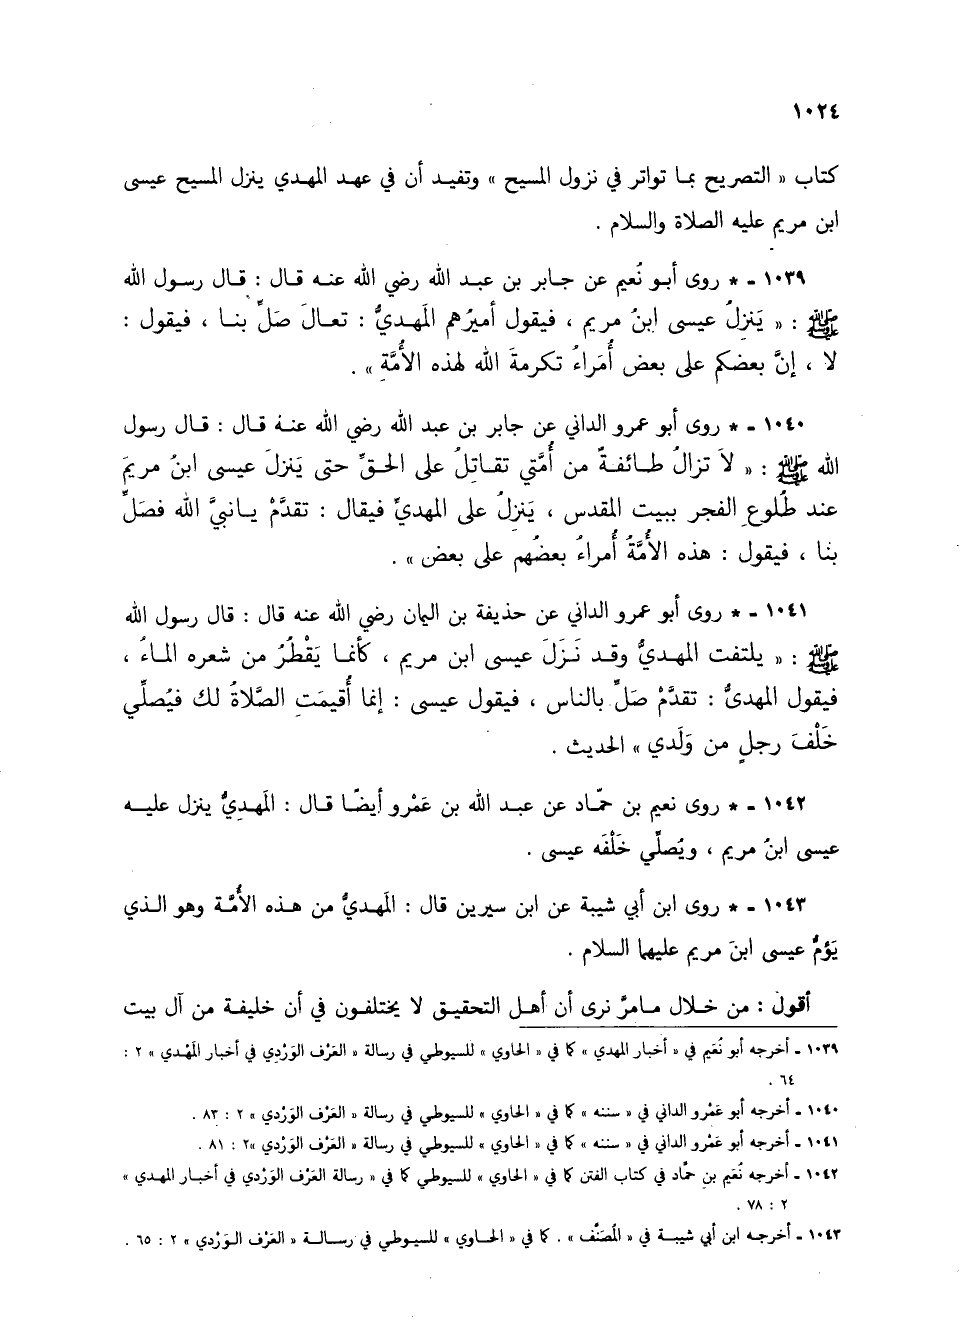 ١٠٢٤
كتاب « التصريح بما تواتر في نزول المسيح » وتفيد أن في عهد المهدي ينزل المسيح عيسى
ابن مريم عليه الصلاة والسلام .
١٠٣٩ ـ * روى أبو نُعيم عن جابر بن عبد الله رضي الله عنه قال : قال رسول الله
ﷺ : « يَنزِلُ عيسى ابنُ مريم ، فيقول أميرُهم المَهديُّ : تعالَ صَلِّ بنا ، فيقول :
لا ، إنَّ بعضكم على بعض أُمَراءُ تكرمةَ الله لهذه الأُمَّةِ » .
١٠٤٠ ـ * روى أبو عمرو الداني عن جابر بن عبد الله رضي الله عنه قال : قال رسول
الله ﷺ : « لاَ تزالُ طائفةٌ من أُمَّتي تقاتِلُ على الحقِّ حتى يَنزلَ عيسى ابنُ مريمَ
عند طُلوعِ الفجر ببيت المقدس ، يَنزِلُ على المهديِّ فيقال : تقدَّمْ يانبيَّ الله فصَلِّ
بنا ، فيقول : هذه الأُمَّةُ أُمراءُ بعضُهم على بعض » .
١٠٤١ ـ * روى أبو عمرو الداني عن حذيفة بن اليمان رضي الله عنه قال : قال رسول الله
ﷺ : « يلتفت المهديُّ وقد نَزَلَ عيسى ابن مريم ، كأنما يَقْطُرُ من شعره الماءُ ،
فيقول المهدىُّ : تقدَّمْ صَلِّ بالناس ، فيقول عيسى : إنما أُقيمَتِ الصَّلاةُ لك فيُصلِّي
خَلْفَ رجلٍ من وَلَدي » الحديث .
١٠٤٢ ـ * روى نعيم بن حمّاد عن عبد الله بن عَمْرو أيضًا قال : المَهديُّ ينزل عليه
عيسى ابنُ مريم ، ويُصلِّي خَلْفَه عيسى .
١٠٤٣ ـ * روى ابن أبي شيبة عن ابن سيرين قال : المَهديُّ من هذه الأُمَّة وهو الذي
يَؤمُّ عيسى ابنَ مريم عليهما السلام .
أقول : من خلال مامرَّ نرى أن أهل التحقيق لا يختلفون في أن خليفة من آل بيت
١٠٣٩ ـ أخرجه أبو نُعَيم في « أخبار المهدي » كما في « الحاوي » للسيوطي في رسالة « العَرْف الوَرْدِي في أخبار المَهْدي » ٢ :
٦٤ .
١٠٤٠ ـ أخرجه أبو عَمْرو الداني في « سننه » كما في « الحاوي » للسيوطي في رسالة « العَرْف الوَرْدي » ٢ : ٨٣ .
١٠٤١ ـ أخرجه أبو عَمْرو الداني في « سننه » كما في « الحاوي » للسيوطي في رسالة « العَرْف الوَرْدي »٢ : ٨١ .
١٠٤٢ ـ أخرجه نُعَيم بن حمَّاد في كتاب الفتن كما في « الحاوي » للسيوطي كما في « رسالة العَرْف الوَرْدي في أخبار المهدي »
٢ : ٧٨ .
١٠٤٣ ـ أخرجه ابن أبي شيبة في « المُصَنَّف » . كما في « الحاوي » للسيوطي في رسالة « العَرْف الوَرْدي » ٢ : ٦٥ .